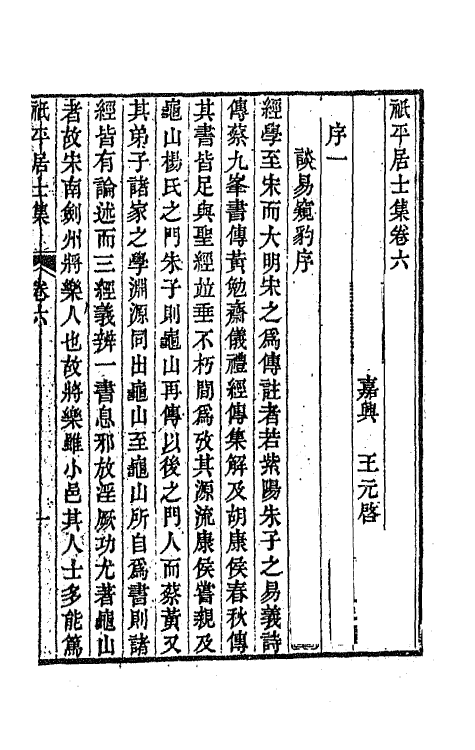 祇平居士集卷六
嘉興　王元啓
序一
談易窺豹序
經學至宋而大明宋之爲傳註者若紫陽朱子之易義詩
傳蔡九峯書傳黃勉齋儀禮經傳集解及胡康侯春秋傳
其書皆足與聖經竝垂不朽間爲攷其源流康侯嘗親及
龜山楊氏之門朱子則龜山再傳以後之門人而蔡黃又
其弟子諸家之學淵源同出龜山至龜山所自爲書則諸
經皆有論述而三經義辨一書息邪放淫厥功尤著龜山
者故宋南劍州將樂人也故將樂雖小邑其人士多能篤
祇平居士集
卷六
一